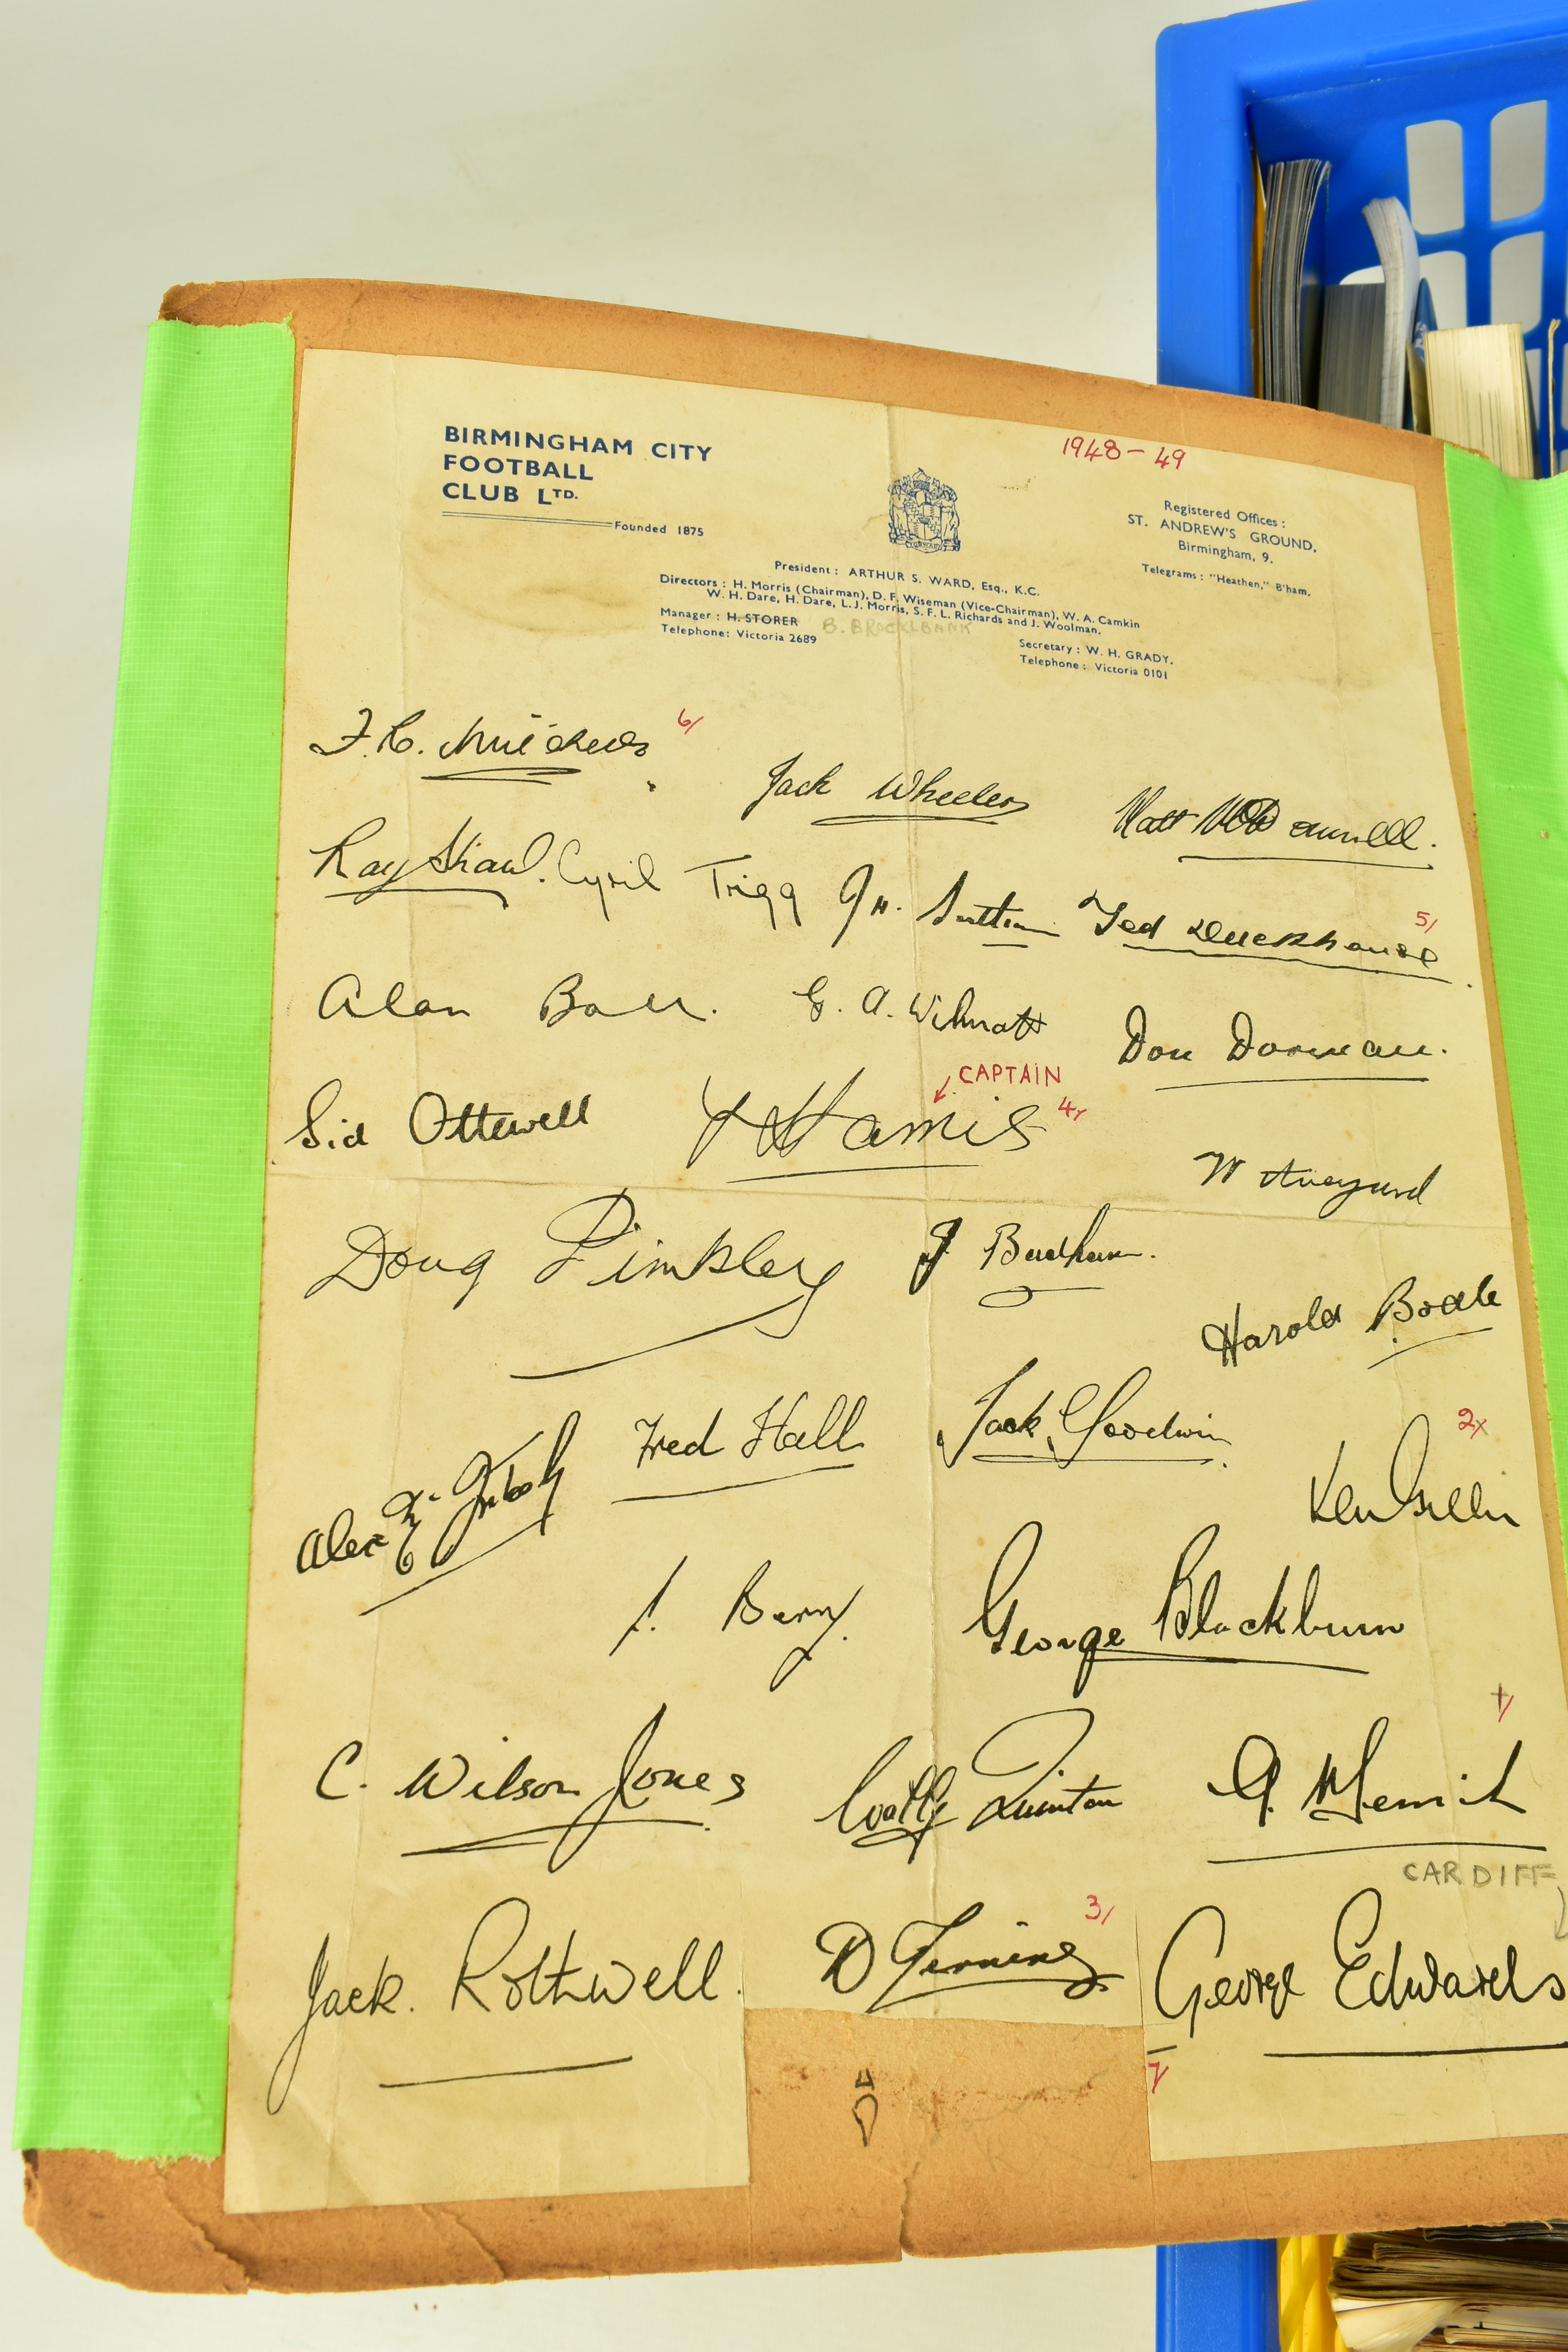 BIRMINGHAM CITY
FOOTBALL
CLUB LTD.
Founded 1875
1948-49
FORWARD
Registered Offices :
ST. ANDREW'S GROUND,
Birmingham, 9.
Telegrams : "Heathen," B'ham.
President : ARTHUR S. WARD, Esq., K.C.
Directors : H. Morris (Chairman), D. F. Wiseman (Vice-Chairman), W. A. Camkin
W. H. Dare, H. Dare, L. J. Morris, S. F. L. Richards and J. Woolman.
Manager : H. STORER B. BROCKLBANK
Telephone: Victoria 2689
Secretary : W. H. GRADY.
Telephone : Victoria 0101
F. C. Mitchell 6/
Jack Wheeler
Matt
Ray Shaw. Cyril Trigg
Sutton Ted Duckhouse 5/
Alan Ball. G. A. Wilmott
Don Dorman.
CAPTAIN
Sid Ottewell
Harris 4/
W Aveyard
Doug Pimbley J Badham.
Harold Bodle
Fred Hall Jack Goodwin
Alex McIntosh
Ken Green 2/
Berry.
George Blackburn
C. Wilson Jones Wally Quinton G. Merrick
CARDIFF
Jack. Rothwell. D Jennings 3/ George Edwards
7/